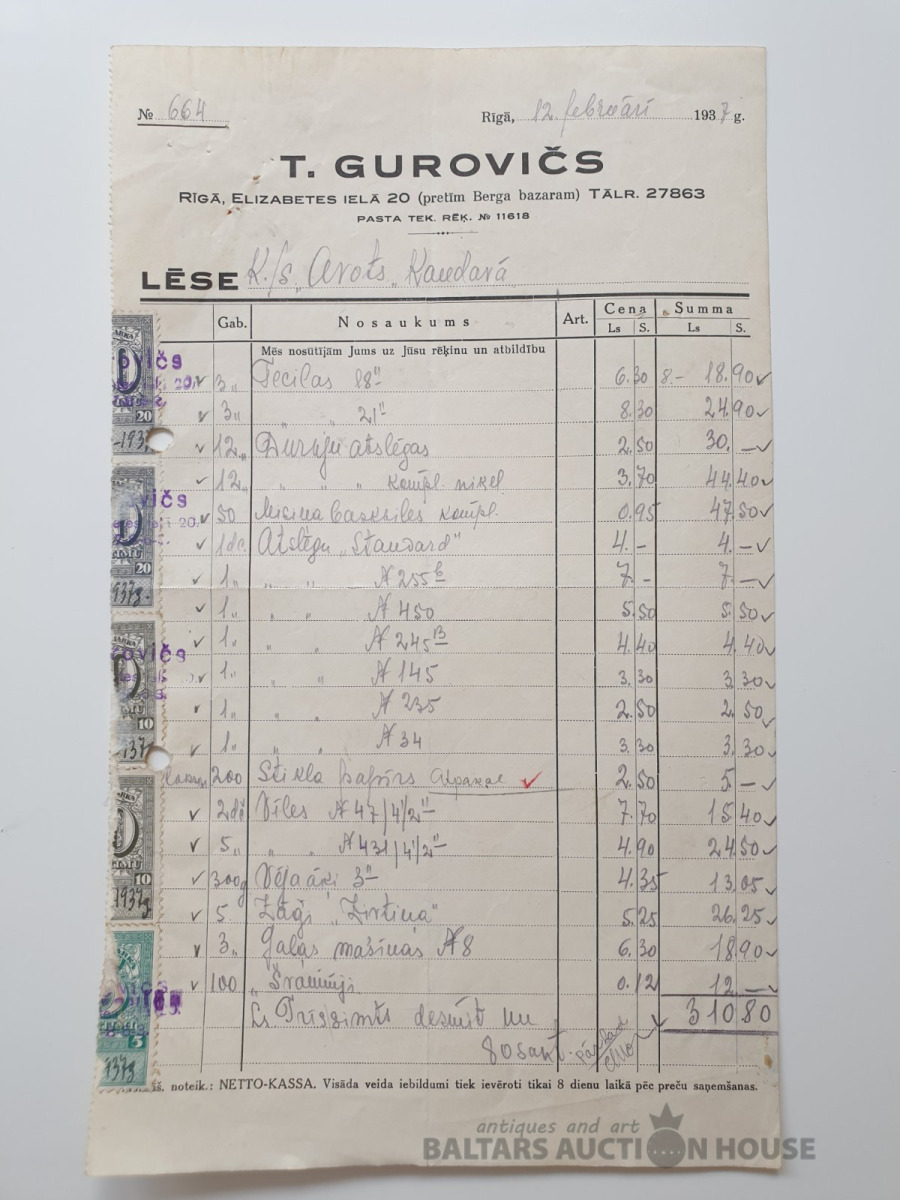 № 664 Rīgā, 12. februārī 1937 g.
T. GUROVIČS
RĪGĀ, ELIZABETES IELĀ 20 (pretīm Berga bazaram) TĀLR. 27863
PASTA TEK. RĒĶ. № 11618
LĒSE K./s. „Avots„ Kandavā
Gab. Nosaukums Art. Cena Summa
Ls S. Ls S.
Mēs nosūtījām Jums uz Jūsu rēķinu un atbildību
3„ Tecilas 18" 6.30 8.- 18.90
3„ „ „ 21" 8.30 24.90
12„ Durvju atslēgas 2.50 30.—
12„ „ „ „ kompl. nikel 3.70 44.40
50 kompl. 0.95 47.50
Atslēgu „Standard" 4.- 4.—
1„ „ „ № 255 7.- 7.—
1„ „ „ № 450 5.50 5.50
1„ „ „ № 245B 4.40 4.40
1„ „ „ № 145 3.30 3.30
1„ „ „ № 235 2.50 2.50
1„ „ „ № 34 3.30 3.30
200 Stikla papīrs atpakaļ 2.50 5—
Vīles № 47/4½" 7.70 15.40
5„ „ „ № 431/4½" 4.90 24.50
300g Vēja āķi 3" 4.35 13.05
5 Zāģi 5.25 26.25
3„ Gaļas mašīnas № 8 6.30 18.90
100 0.12 12.—
Ls Trīssimts desmit un 310 80
80 sant.
š. noteik.: NETTO-KASSA. Visāda veida iebildumi tiek ievēroti tikai 8 dienu laikā pēc preču saņemšanas.
20
20
10
10
5
antiques and art
BALTARS AUCTION HOUSE